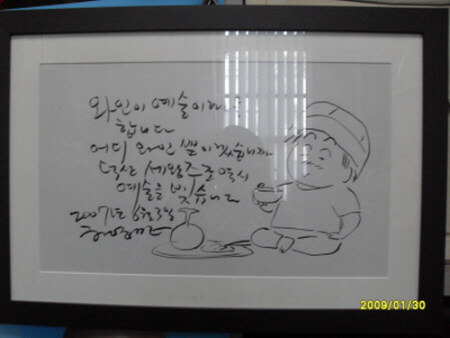 와인이 예술이라고
합니다
어디 와인 뿐이겠습니까
덕산 세왕주조 역시
예술을 빚습니다
2007년 6월 3일
2009/01/30